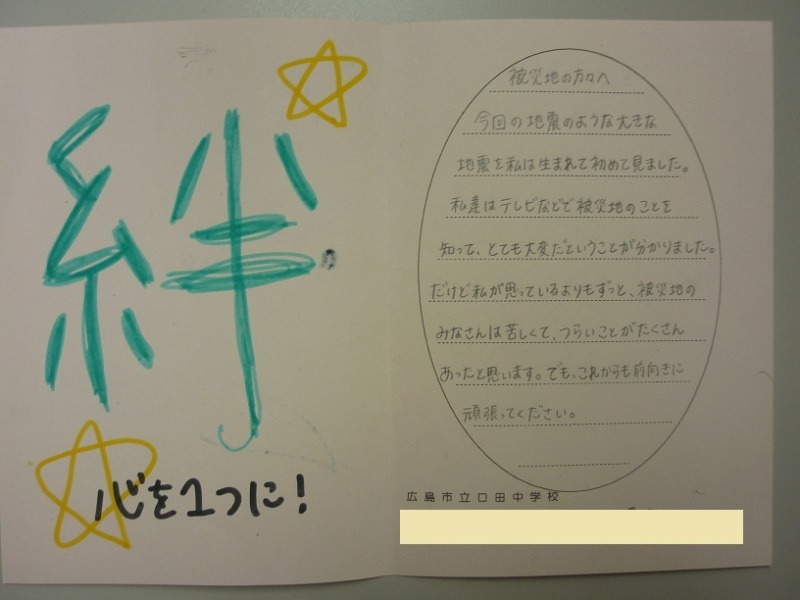 絆
心を1つに!
被災地の方々へ
今回の地震のような大きな
地震を私は生まれて初めて見ました。
私達はテレビなどで被災地のことを
知って、とても大変だということが分かりました。
だけど私が思っているよりもずっと、被災地の
みなさんは苦しくて、つらいことがたくさん
あったと思います。でも、これからも前向きに
頑張ってください。
広島市立口田中学校